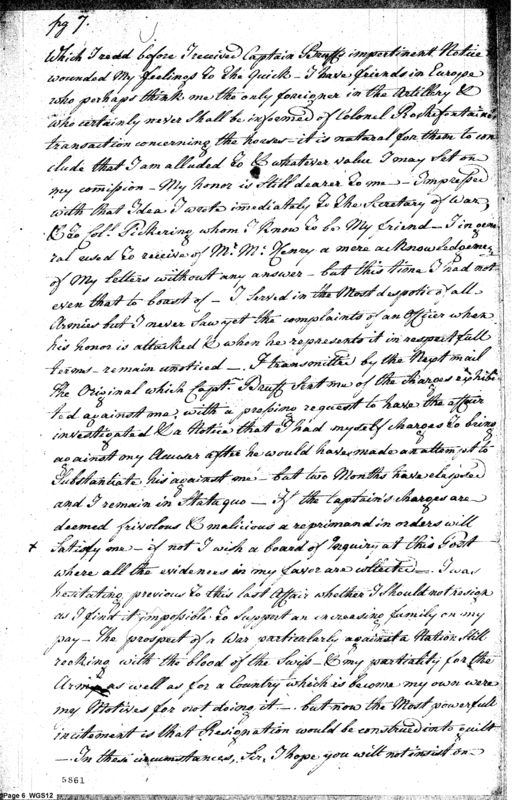 pg 7.
Which I redd before I received Captain Bruffs impertinent Notice
wounded My feelings to the Quick – I have friends in Europe
who perhaps think me the only foreigner in the Artillery &
who certainly never shall be informed of Colonel Rochefontaine
transaction concerning the houses – it is natural for them to con
clude that I am alluded to & whatever value I may set on
my comission – My honor is still dearer to me – Impressed
with that Idea I wrote imediately to the Secretary of War,
& to Col. Pickering whom I know to be My friend – I in gene
ral used to receive of Mr. Mc. Henry a mere acknowledgemen
of My letters without any answer – but this time I had not
even that to boast of – I served in the Most despotic of all
Armies but I never saw yet the complaints of an Officer when
his honor is attacked & when he represents it in respectfull
terms – remain unoticed – I transmitted by the Next mail
the Original which Capt. Bruff sent me of the charges exhibi
ted against me, with a pressing request to have the affair
investigated & a Notice that I had myself charges to bring
against my Accuser after he would have made an attempt to
Substantiate his against me – but two Months have elapsed
and I remain in Statu quo – If the Captain's charges are
deemed frivolous & malicious a reprimand in orders will
x Satisfy me – if not I wish a board of Inquiry at this Post
where all the evidences in my favor are collected – I was
hesitating previous to this last Affair whether I should not resign
as I find it impossible to support an increasing family on my
pay – The prospect of a War particularly against a Nation still
reeking with the blood of the Swiss – & my partiality for the
Army as well as for a Country which is become my own were
my Motives for not doing it – but now the Most powerfull
incitement is that Resignation would be construed into guilt
– In these circumstances, Sir, I hope you will not insist on
5861
Page 6 WGS12